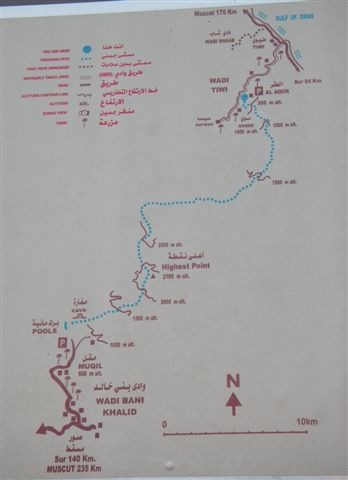 Muscat 170 Km
GULF OF OMAN
YOU ARE HERE
انت هنا
TREKKING PATH
ممشى بيئي
FOOT PATH UNMARKED
ممشى بدون علامات
طريق وادي (4WD)
ROAD
طريق
ALTITUDE CONTOUR LINE
خط الارتفاع التضاريسي
ALTITUDE
الارتفاع
SCENIC VIEW
منظر جميل
FARM
مزرعة
وادي شاب
WADI SHAAB
طيوي
TIWI
WADI
TIWI
Sur 54 Km
P
AL AQOR
500 m alt.
سوي
SOOEE
1000 m alt.
1000 m alt.
1500 m alt.
2000 m alt.
أعلى نقطة
Highest Point
2100 m alt.
2000 m alt.
مغارة
CAVE
1500 m alt.
برك مائية
POOLS
P
1000 m alt.
مقل
MUQIL
500 m alt.
وادي بني خالد
WADI BANI
KHALID
N
0
10km
صور
مسقط
Sur 140 Km.
MUSCUT 235 Km